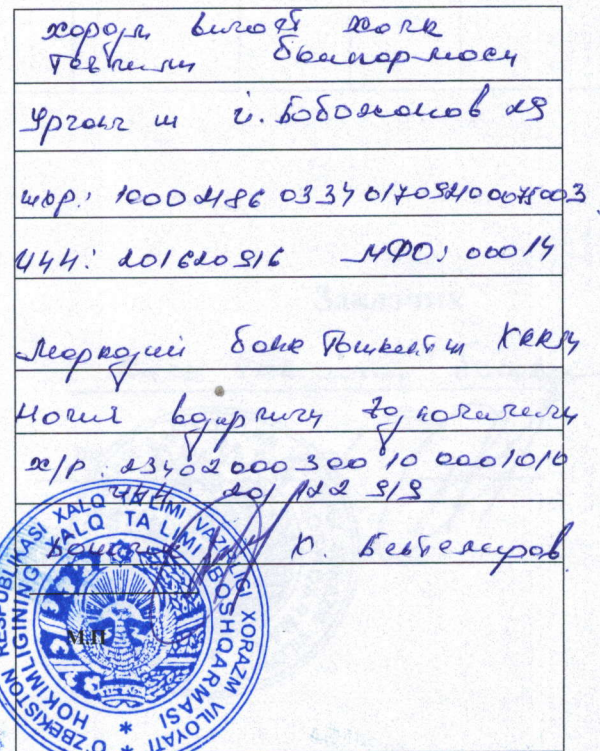 Хоразм вилояти халқ
таълими бошқармаси
Урганч ш й. Бобожонов 29
шхр: 100021860334017092100075003
ИНН: 201620916 МФО: 00014
Марказий банк Тошкент ш ХККМ
Молия вазирлиги Ғазначилиги
х/р. 23402000300100001010
ИНН: 201122919
Бошлиқ К. Бектемиров
М.П
O'ZBEKISTON RESPUBLIKASI XALQ TA'LIMI VAZIRLIGI XORAZM VILOYATI
HOKIMLIGINING XALQ TA'LIMI BOSHQARMASI